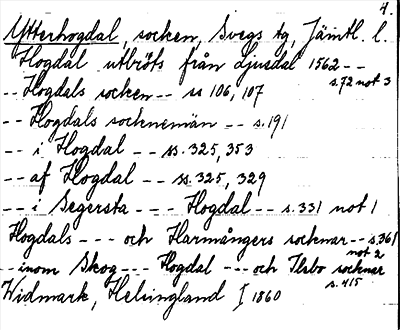 4.
Ytterhogdal, socken, Svegs tg, Jämtl. l.
Hogdal utbröts från Ljusdal 1562 --
s. 72 not 3
-- Hogdals socken -- ss 106, 107
-- Hogdals socknemän -- s. 191
-- i Hogdal -- ss. 325, 353
-- af Hogdal -- ss. 325, 329
-- i Segersta --- Hogdal -- s. 331 not 1
Hogdals --- och Harmångers socknar -- s. 361
not 2
-- inom Skog --- Hogdal --- och Ilsbo socknar
s. 415
Widmark, Helsingland I 1860